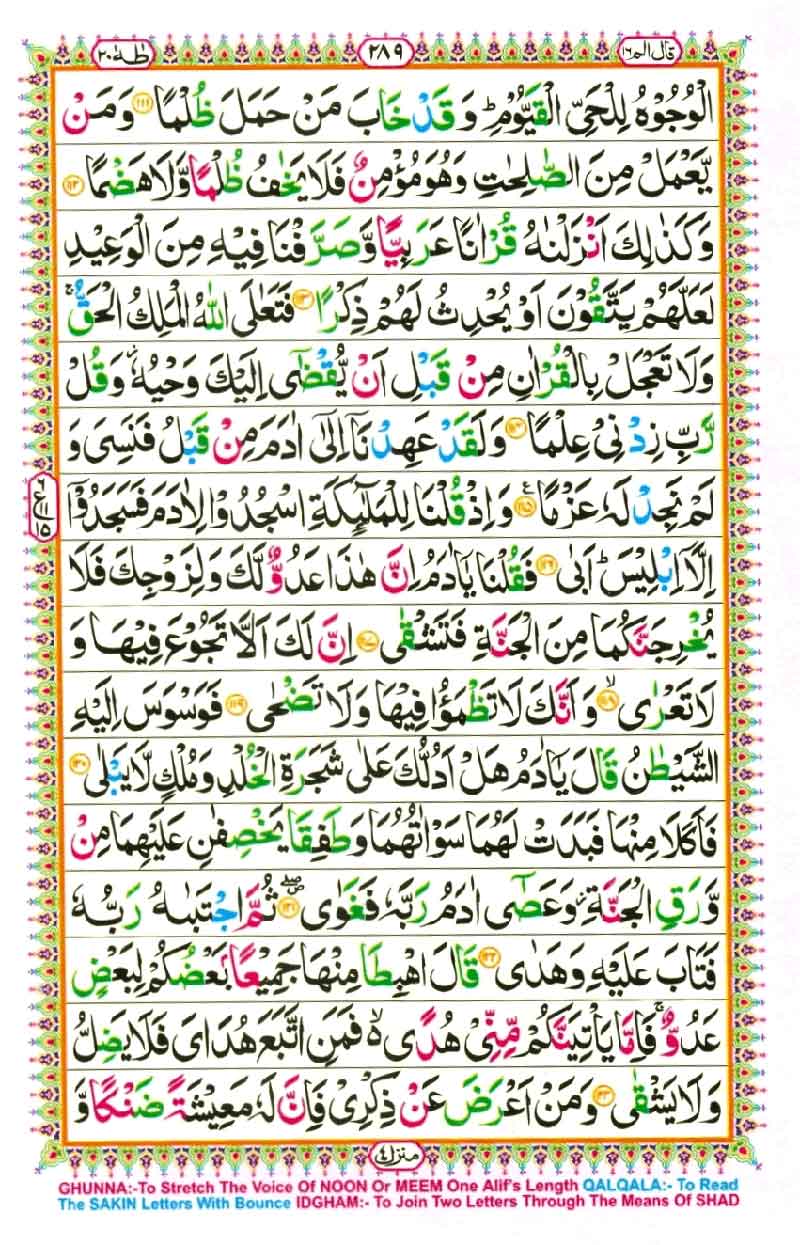 قال الم ١٦
٢٨٩
طٰهٰ ٢٠
الْوُجُوْهُ لِلْحَیِّ الْقَیُّوْمِ ؕ وَ قَدْ خَابَ مَنْ حَمَلَ ظُلْمًا ﴿۱۱۱﴾ وَ مَنْ
یَّعْمَلْ مِنَ الصّٰلِحٰتِ وَ هُوَ مُؤْمِنٌ فَلَا یَخٰفُ ظُلْمًا وَّ لَا هَضْمًا ﴿۱۱۲﴾
وَ كَذٰلِكَ اَنْزَلْنٰهُ قُرْاٰنًا عَرَبِیًّا وَّ صَرَّفْنَا فِیْهِ مِنَ الْوَعِیْدِ
لَعَلَّهُمْ یَتَّقُوْنَ اَوْ یُحْدِثُ لَهُمْ ذِكْرًا ﴿۱۱۳﴾ فَتَعٰلَی اللّٰهُ الْمَلِكُ الْحَقُّ ۚ
وَ لَا تَعْجَلْ بِالْقُرْاٰنِ مِنْ قَبْلِ اَنْ یُّقْضٰۤی اِلَیْكَ وَحْیُهٗ ؗ وَ قُلْ
رَّبِّ زِدْنِیْ عِلْمًا ﴿۱۱۴﴾ وَ لَقَدْ عَهِدْنَاۤ اِلٰۤی اٰدَمَ مِنْ قَبْلُ فَنَسِیَ وَ
لَمْ نَجِدْ لَهٗ عَزْمًا ﴿۱۱۵﴾ ع وَ اِذْ قُلْنَا لِلْمَلٰٓىِٕكَةِ اسْجُدُوْا لِاٰدَمَ فَسَجَدُوْۤا
ع
١٥
اِلَّاۤ اِبْلِیْسَ ؕ اَبٰی ﴿۱۱۶﴾ فَقُلْنَا یٰۤاٰدَمُ اِنَّ هٰذَا عَدُوٌّ لَّكَ وَ لِزَوْجِكَ فَلَا
یُخْرِجَنَّكُمَا مِنَ الْجَنَّةِ فَتَشْقٰی ﴿۱۱۷﴾ اِنَّ لَكَ اَلَّا تَجُوْعَ فِیْهَا وَ
لَا تَعْرٰی ﴿۱۱۸﴾ وَ اَنَّكَ لَا تَظْمَؤُا فِیْهَا وَ لَا تَضْحٰی ﴿۱۱۹﴾ فَوَسْوَسَ اِلَیْهِ
الشَّیْطٰنُ قَالَ یٰۤاٰدَمُ هَلْ اَدُلُّكَ عَلٰی شَجَرَةِ الْخُلْدِ وَ مُلْكٍ لَّا یَبْلٰی ﴿۱۲۰﴾
فَاَكَلَا مِنْهَا فَبَدَتْ لَهُمَا سَوْاٰتُهُمَا وَ طَفِقَا یَخْصِفٰنِ عَلَیْهِمَا مِنْ
وَّرَقِ الْجَنَّةِ ؗ وَ عَصٰۤی اٰدَمُ رَبَّهٗ فَغَوٰی ﴿۱۲۱﴾ ثُمَّ اجْتَبٰىهُ رَبُّهٗ
فَتَابَ عَلَیْهِ وَ هَدٰی ﴿۱۲۲﴾ قَالَ اهْبِطَا مِنْهَا جَمِیْعًۢا بَعْضُكُمْ لِبَعْضٍ
عَدُوٌّ ۚ فَاِمَّا یَاْتِیَنَّكُمْ مِّنِّیْ هُدًی ۙ۬ فَمَنِ اتَّبَعَ هُدَایَ فَلَا یَضِلُّ
وَ لَا یَشْقٰی ﴿۱۲۳﴾ وَ مَنْ اَعْرَضَ عَنْ ذِكْرِیْ فَاِنَّ لَهٗ مَعِیْشَةً ضَنْكًا وَّ
منزل ٤
GHUNNA:-To Stretch The Voice Of NOON Or MEEM One Alif's Length QALQALA:- To Read
The SAKIN Letters With Bounce IDGHAM:- To Join Two Letters Through The Means Of SHAD